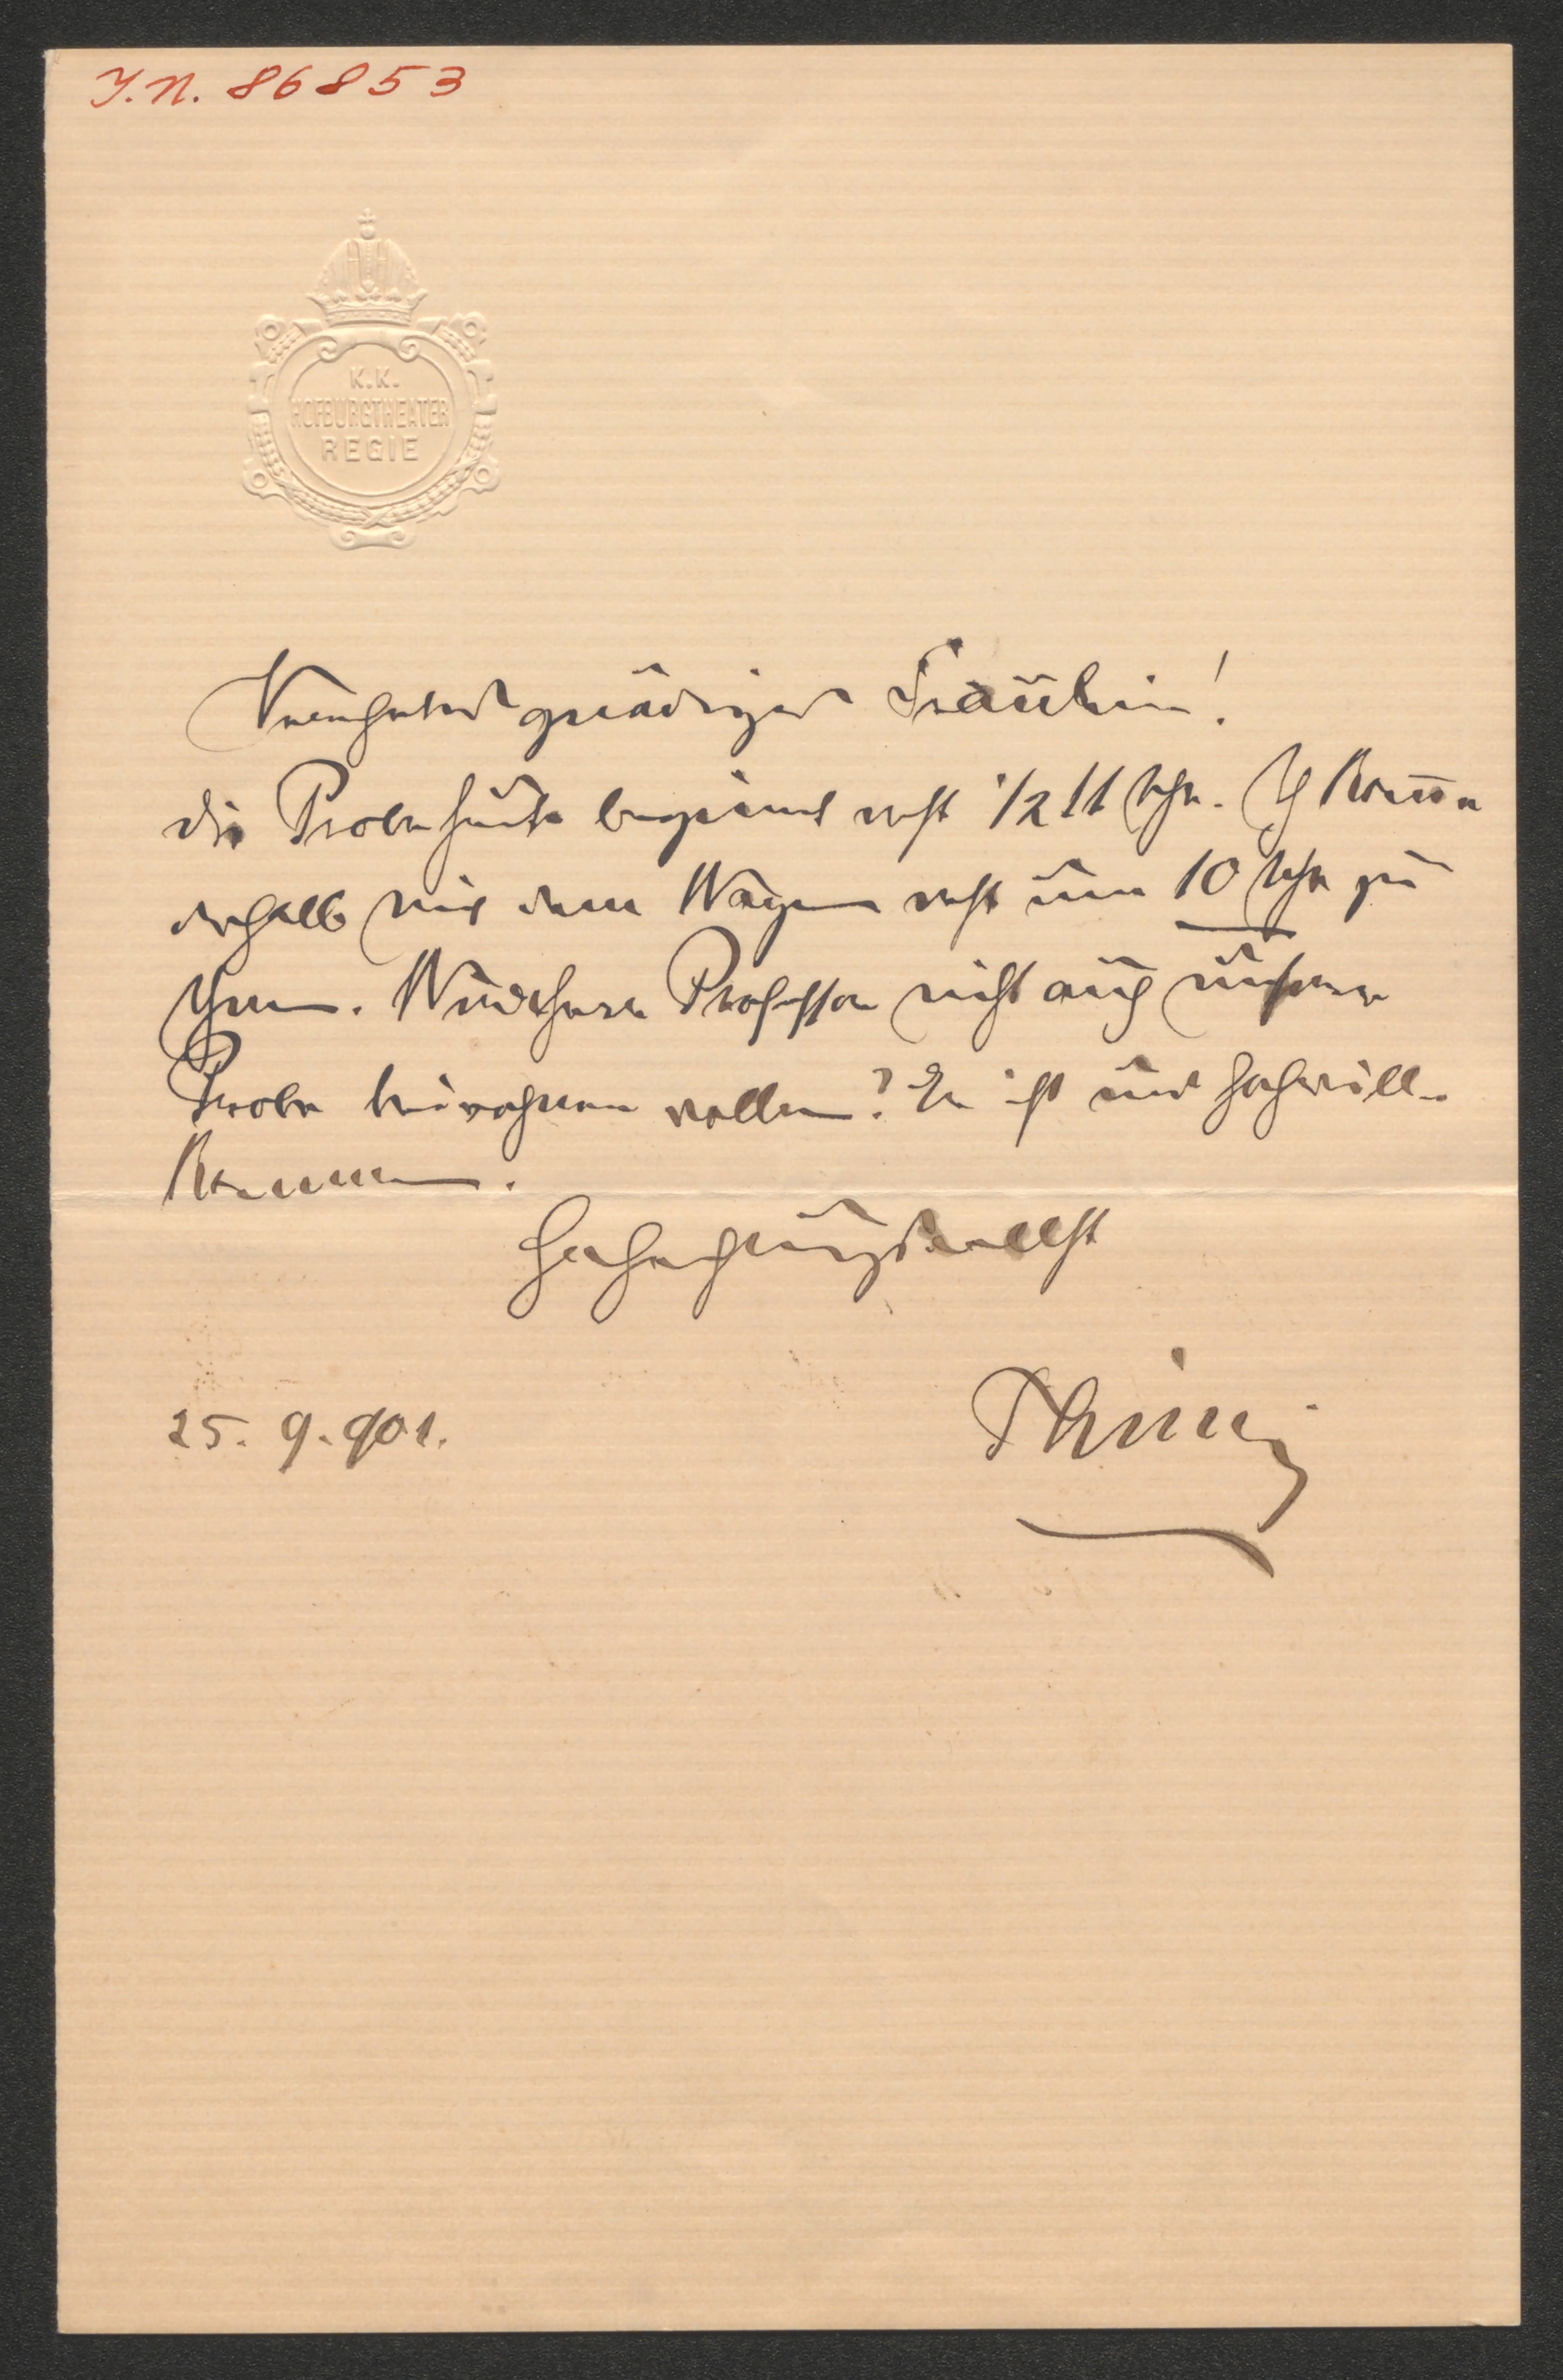 I.N. 86853
K.K.
HOFBURGTHEATER
REGIE
Verehrtes gnädiges Fräulein!
die Probe heute beginnt erst 1/2 11 Uhr. Ich komme
deshalb mit dem Wagen erst um 10 Uhr zu
Ihnen. Wird Herr Professor nicht auch unserer
Probe beiwohnen wollen? Er ist uns hochwill-
kommen.
Hochachtungsvollst
25. 9. 901.
Thimig